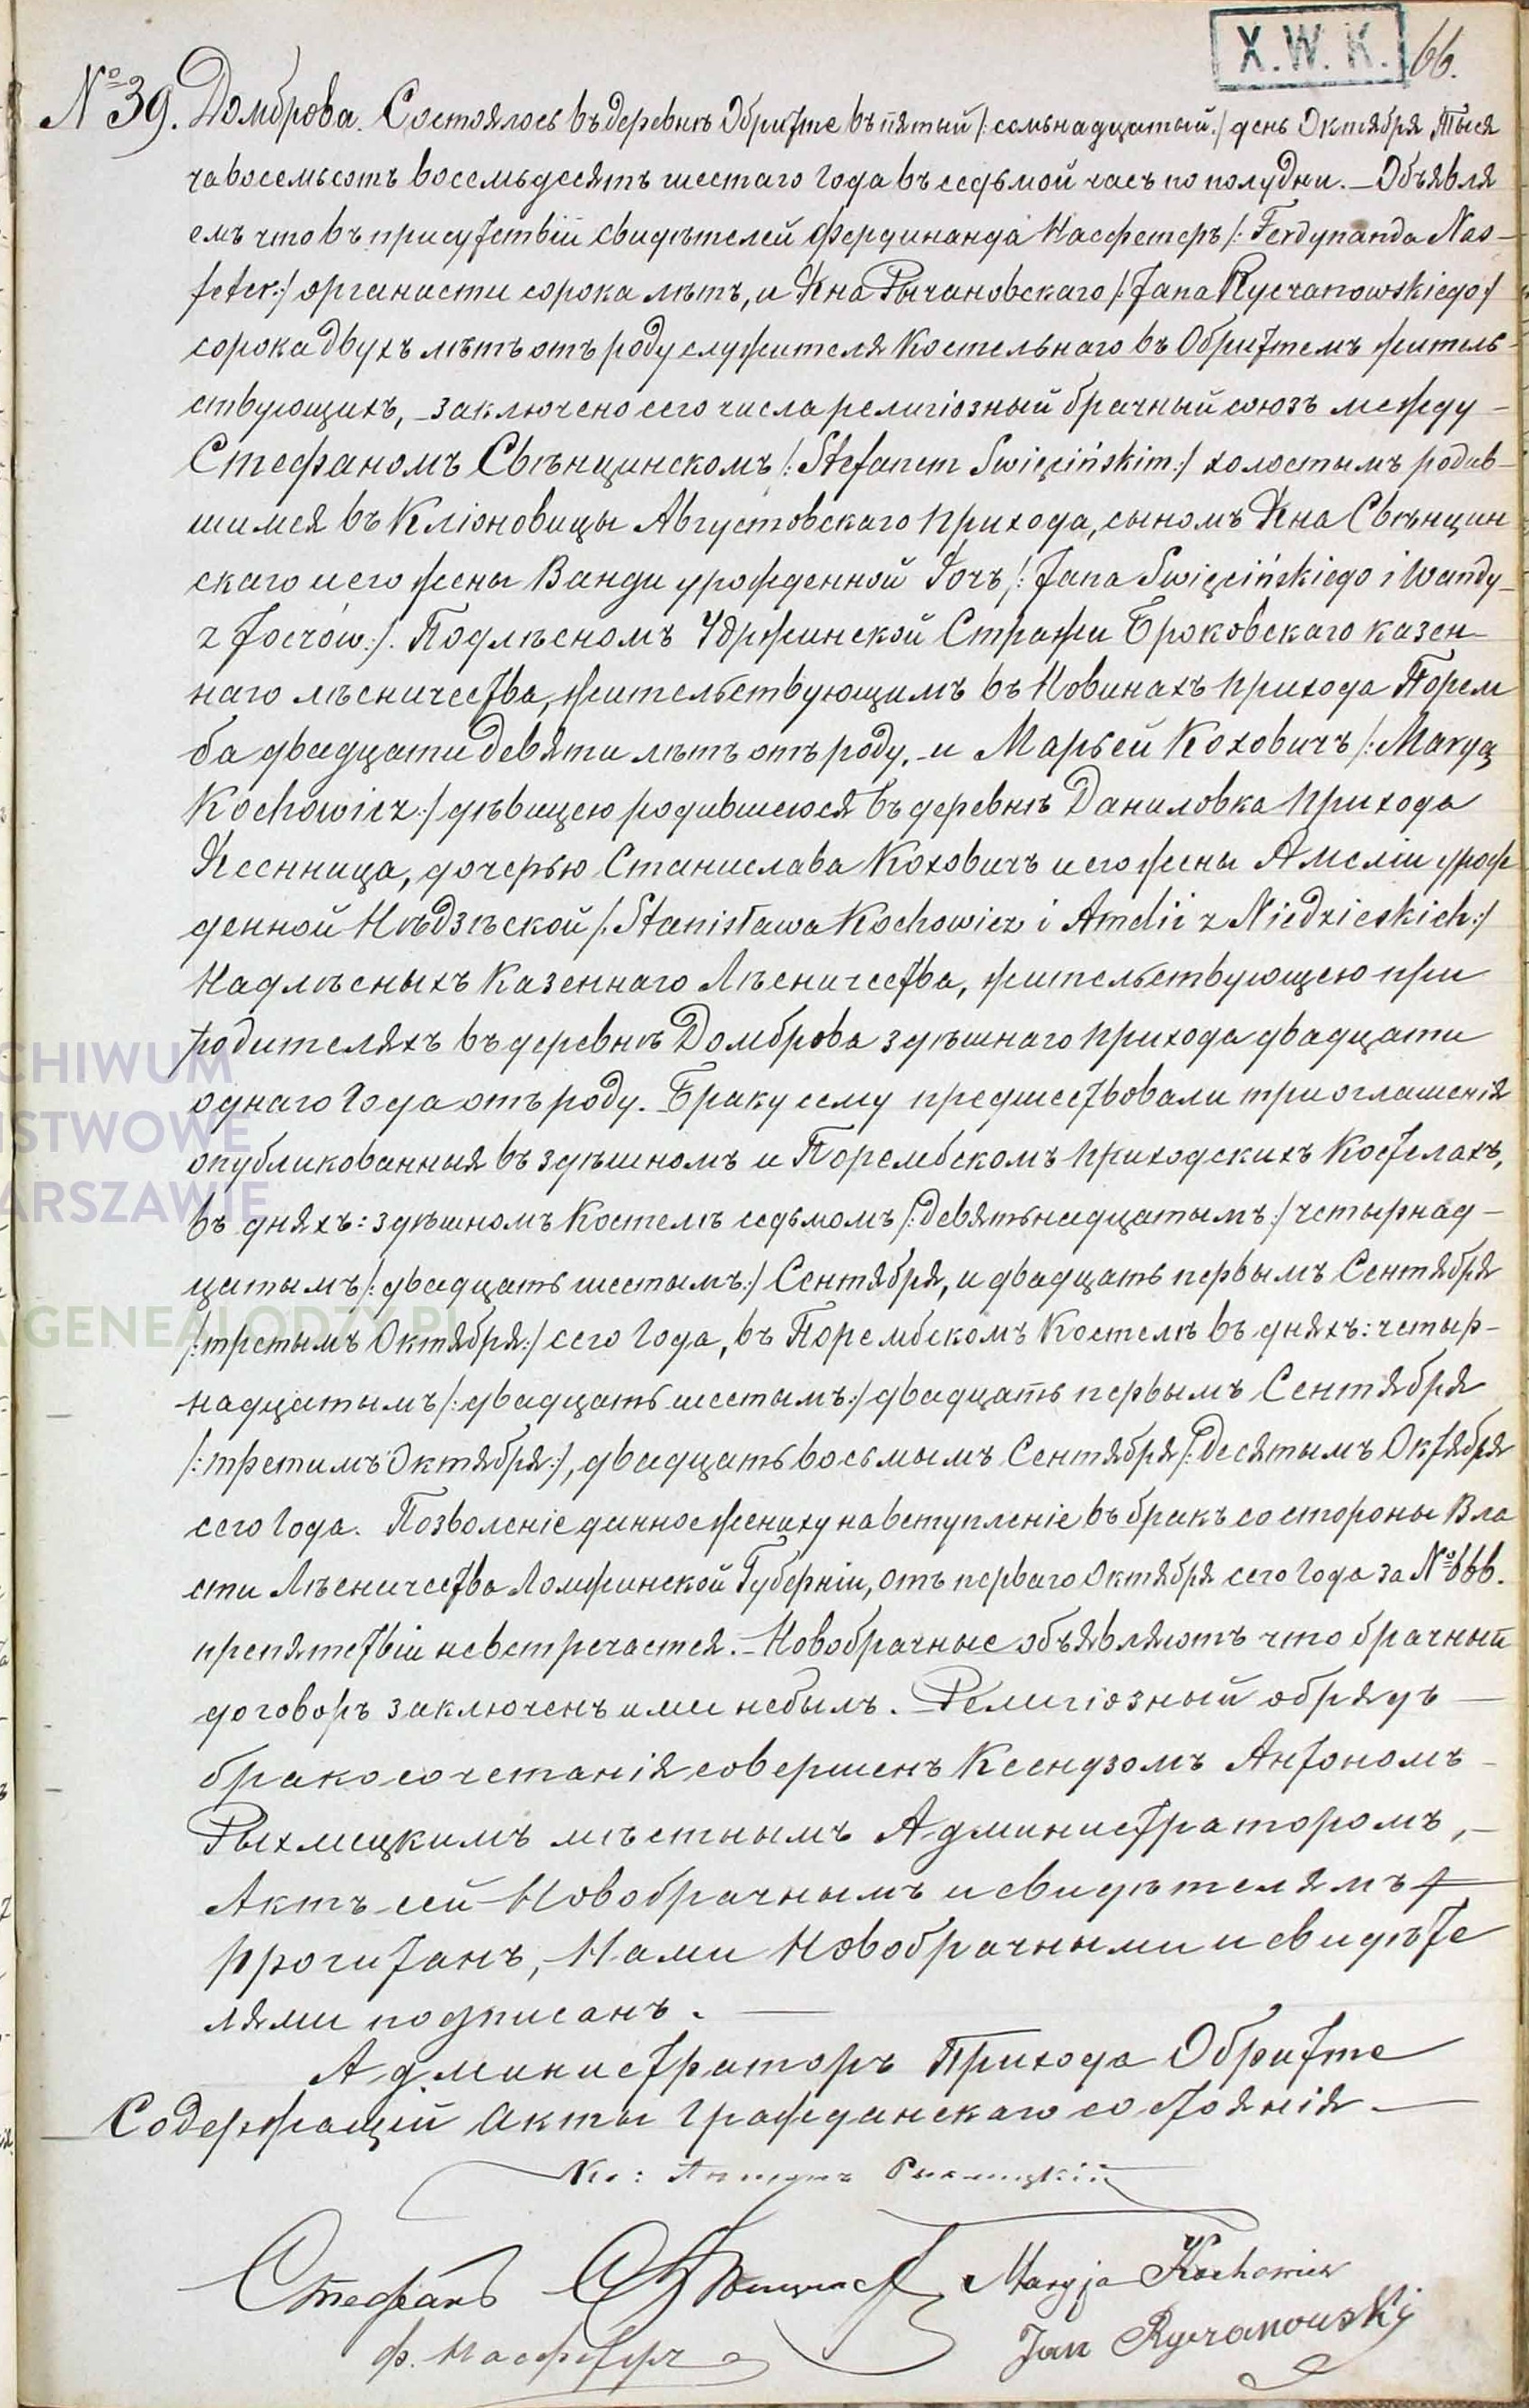 X.W.K. 66.
№ 39. Домброва. Состоялось въ деревнѣ Обритте въ пятый /:семьнадцатый:/ день Октября Тыся
ча восемьсотъ восемьдесятъ шестаго года въ седьмой часъ по полудни. – Объявля
емъ что въ присутствіи свидѣтелей Фердинанда Насфетеръ /: Ferdynanda Nas–
feter:/ органисти сорока лѣтъ, и Яна Рычановскаго /: Jana Ryczanowskiego:/
сорока двухъ лѣтъ отъ роду служителя костельнаго въ Обриттемъ житель–
ствующихъ, – заключено сего числа религіозный брачный союзъ между –
Стефаномъ Свѣнцинскомъ /: Stefanem Święcińskim:/ холостымъ родив–
шимся въ Кліоновицы Августовскаго прихода, сыномъ Яна Свѣнцин
скаго и его жены Ванди урожденной Йочъ /: Jana Święcińskiego i Wandy–
z Joczów:/. Подлѣсномъ Удржинской Стражи Броковскаго казен–
наго лѣсничества, жительствующимъ въ Новинахъ прихода Порем
ба двадцати девяти лѣтъ отъ роду, – и Марьей Коховичъ /: Maryą
Kochowicz:/ дѣвицею родившеюся въ деревнѣ Даниловка прихода
Ясенница, дочерью Станислава Коховичъ и его жены Амеліи урож
денной Нѣдзѣской /: Stanisława Kochowicz i Amelii z Niedzieskich:/
Надлѣсныхъ Казеннаго Лѣсничества, жительствующею при
родителяхъ въ деревнѣ Домброва здѣшнаго прихода двадцати
однаго года отъ роду. Браку сему предшествовали три оглашенія
опубликованныя въ здѣшномъ и Порембскомъ приходскихъ костелахъ,
въ дняхъ: здѣшномъ Костелѣ седьмомъ /: девятьнадцатымъ:/ четырнад–
цатымъ /: двадцать шестымъ:/ Сентября, и двадцать первымъ Сентября
/: третымъ Октября:/ сего года, въ Порембскомъ Костелѣ въ дняхъ: четыр–
надцатымъ /: двадцать шестымъ:/ двадцать первымъ Сентября
/: третимъ Октября:/, двадцать восьмымъ Сентября /: десятымъ Октября
сего года. Позволеніе данное жениху на вступленіе въ бракъ со стороны Вла
сти Лѣсничества Ломжинской Губерніи, отъ перваго Октября сего года за № 666.
препятствіи невстречается. – Новобрачные объявляютъ что брачный
договоръ заключенъ ими небылъ. – Религіозный обрядъ –
бракосочетанія совершенъ Ксендзомъ Антономъ –
Рыхлицкимъ мѣстнымъ Администраторомъ, –
Актъ сей Новобрачнымъ и свидѣтелямъ
прочитанъ, Нами Новобрачными и свидѣте
лями подписанъ. –
Администраторъ Прихода Обритте
Содержащій Акты Гражданскаго состоянія –
Кс: Антонъ Рыхлицкій
Стефанъ Свѣнцинскі Maryja Kochowicz
Ф. Насфетеръ Jan Ryczanowski
ARCHIWUM
PAŃSTWOWE
WARSZAWIE
GENEALODZY.PL